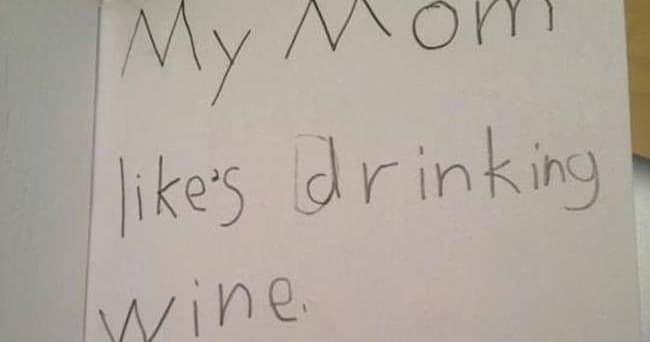 My Mom
like's drinking
wine.